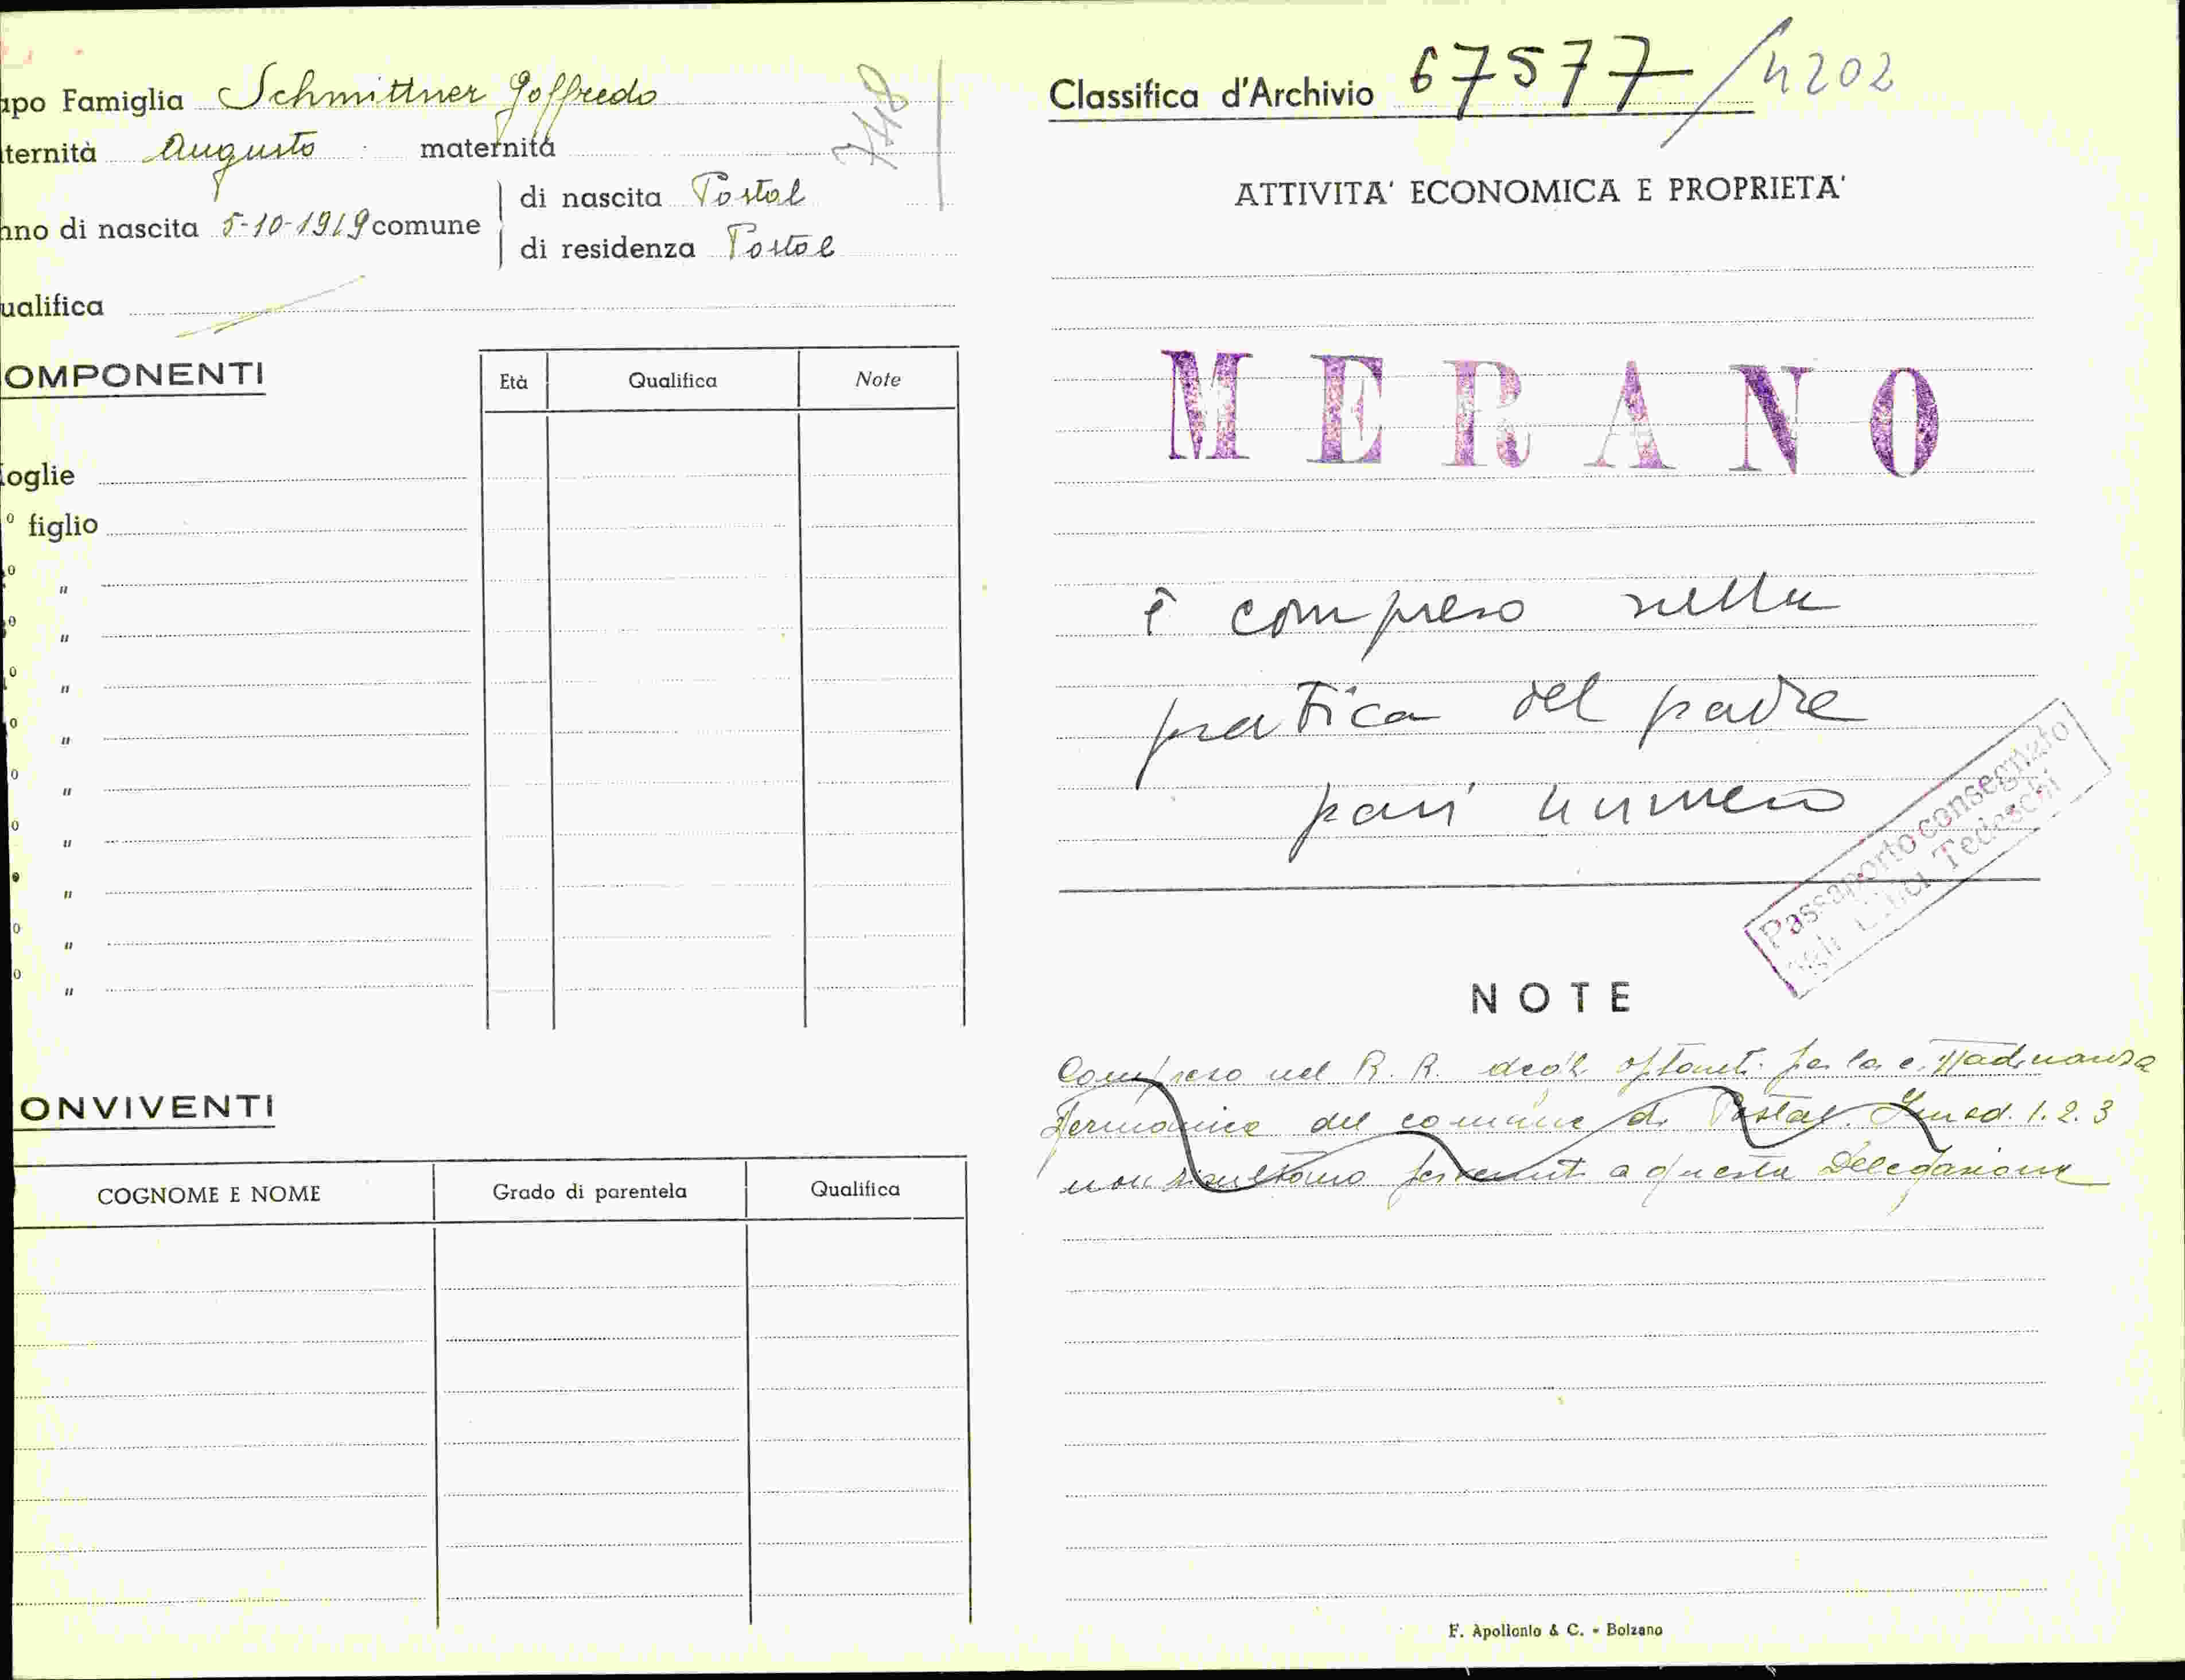 apo Famiglia Schmittner Goffredo
7718
ternità Augusto maternità
nno di nascita 5-10-1919 comune
di nascita Postal
di residenza Postal
ualifica
OMPONENTI
Età Qualifica Note
oglie
º figlio
º "
º "
º "
º "
º "
º "
"
º "
º "
ONVIVENTI
COGNOME E NOME Grado di parentela Qualifica
Classifica d'Archivio 67577/4202
ATTIVITA' ECONOMICA E PROPRIETA'
MERANO
è compreso nella
pratica del padre
pari numero
Passaporto consegnato
agli Uffici Tedeschi
NOTE
Compreso nel R. R. degli optanti per la cittadinanza
germanica del comune di Postal. 1. 2. 3
non risultano pervenuti a questa Delegazione
F. Apollonio & C. - Bolzano